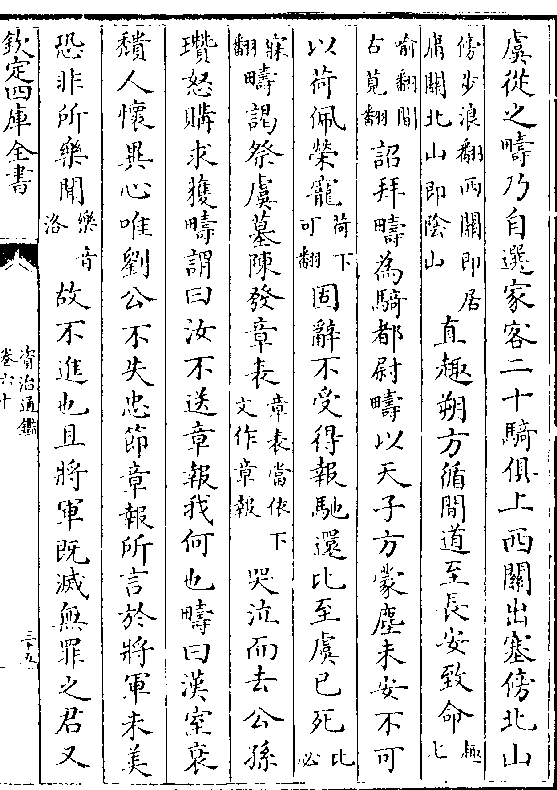 虞從之疇乃自選家客二十騎俱上西關出塞傍北山
傍步浪翻西關即居
庸關北山即陰山
直趣朔方循間道至長安致命
趣
七
喻翻間
古莧翻
詔拜疇為騎都尉疇以天子方蒙塵未安不可
以荷佩榮寵
荷下
可翻
固辭不受得報馳還比至虞已死
比
必
寐
翻
疇謁祭虞墓陳發章表
章表當依下
文作章報
哭泣而去公孫
瓚怒購求獲疇謂曰汝不送章報我何也疇曰漢室衰
穨人懷異心唯劉公不失忠節章報所言於將軍未美
恐非所樂聞
樂音
洛
故不進也且將軍既滅無罪之君又
欽定四庫全書
資治通鑑
卷六十
三十五